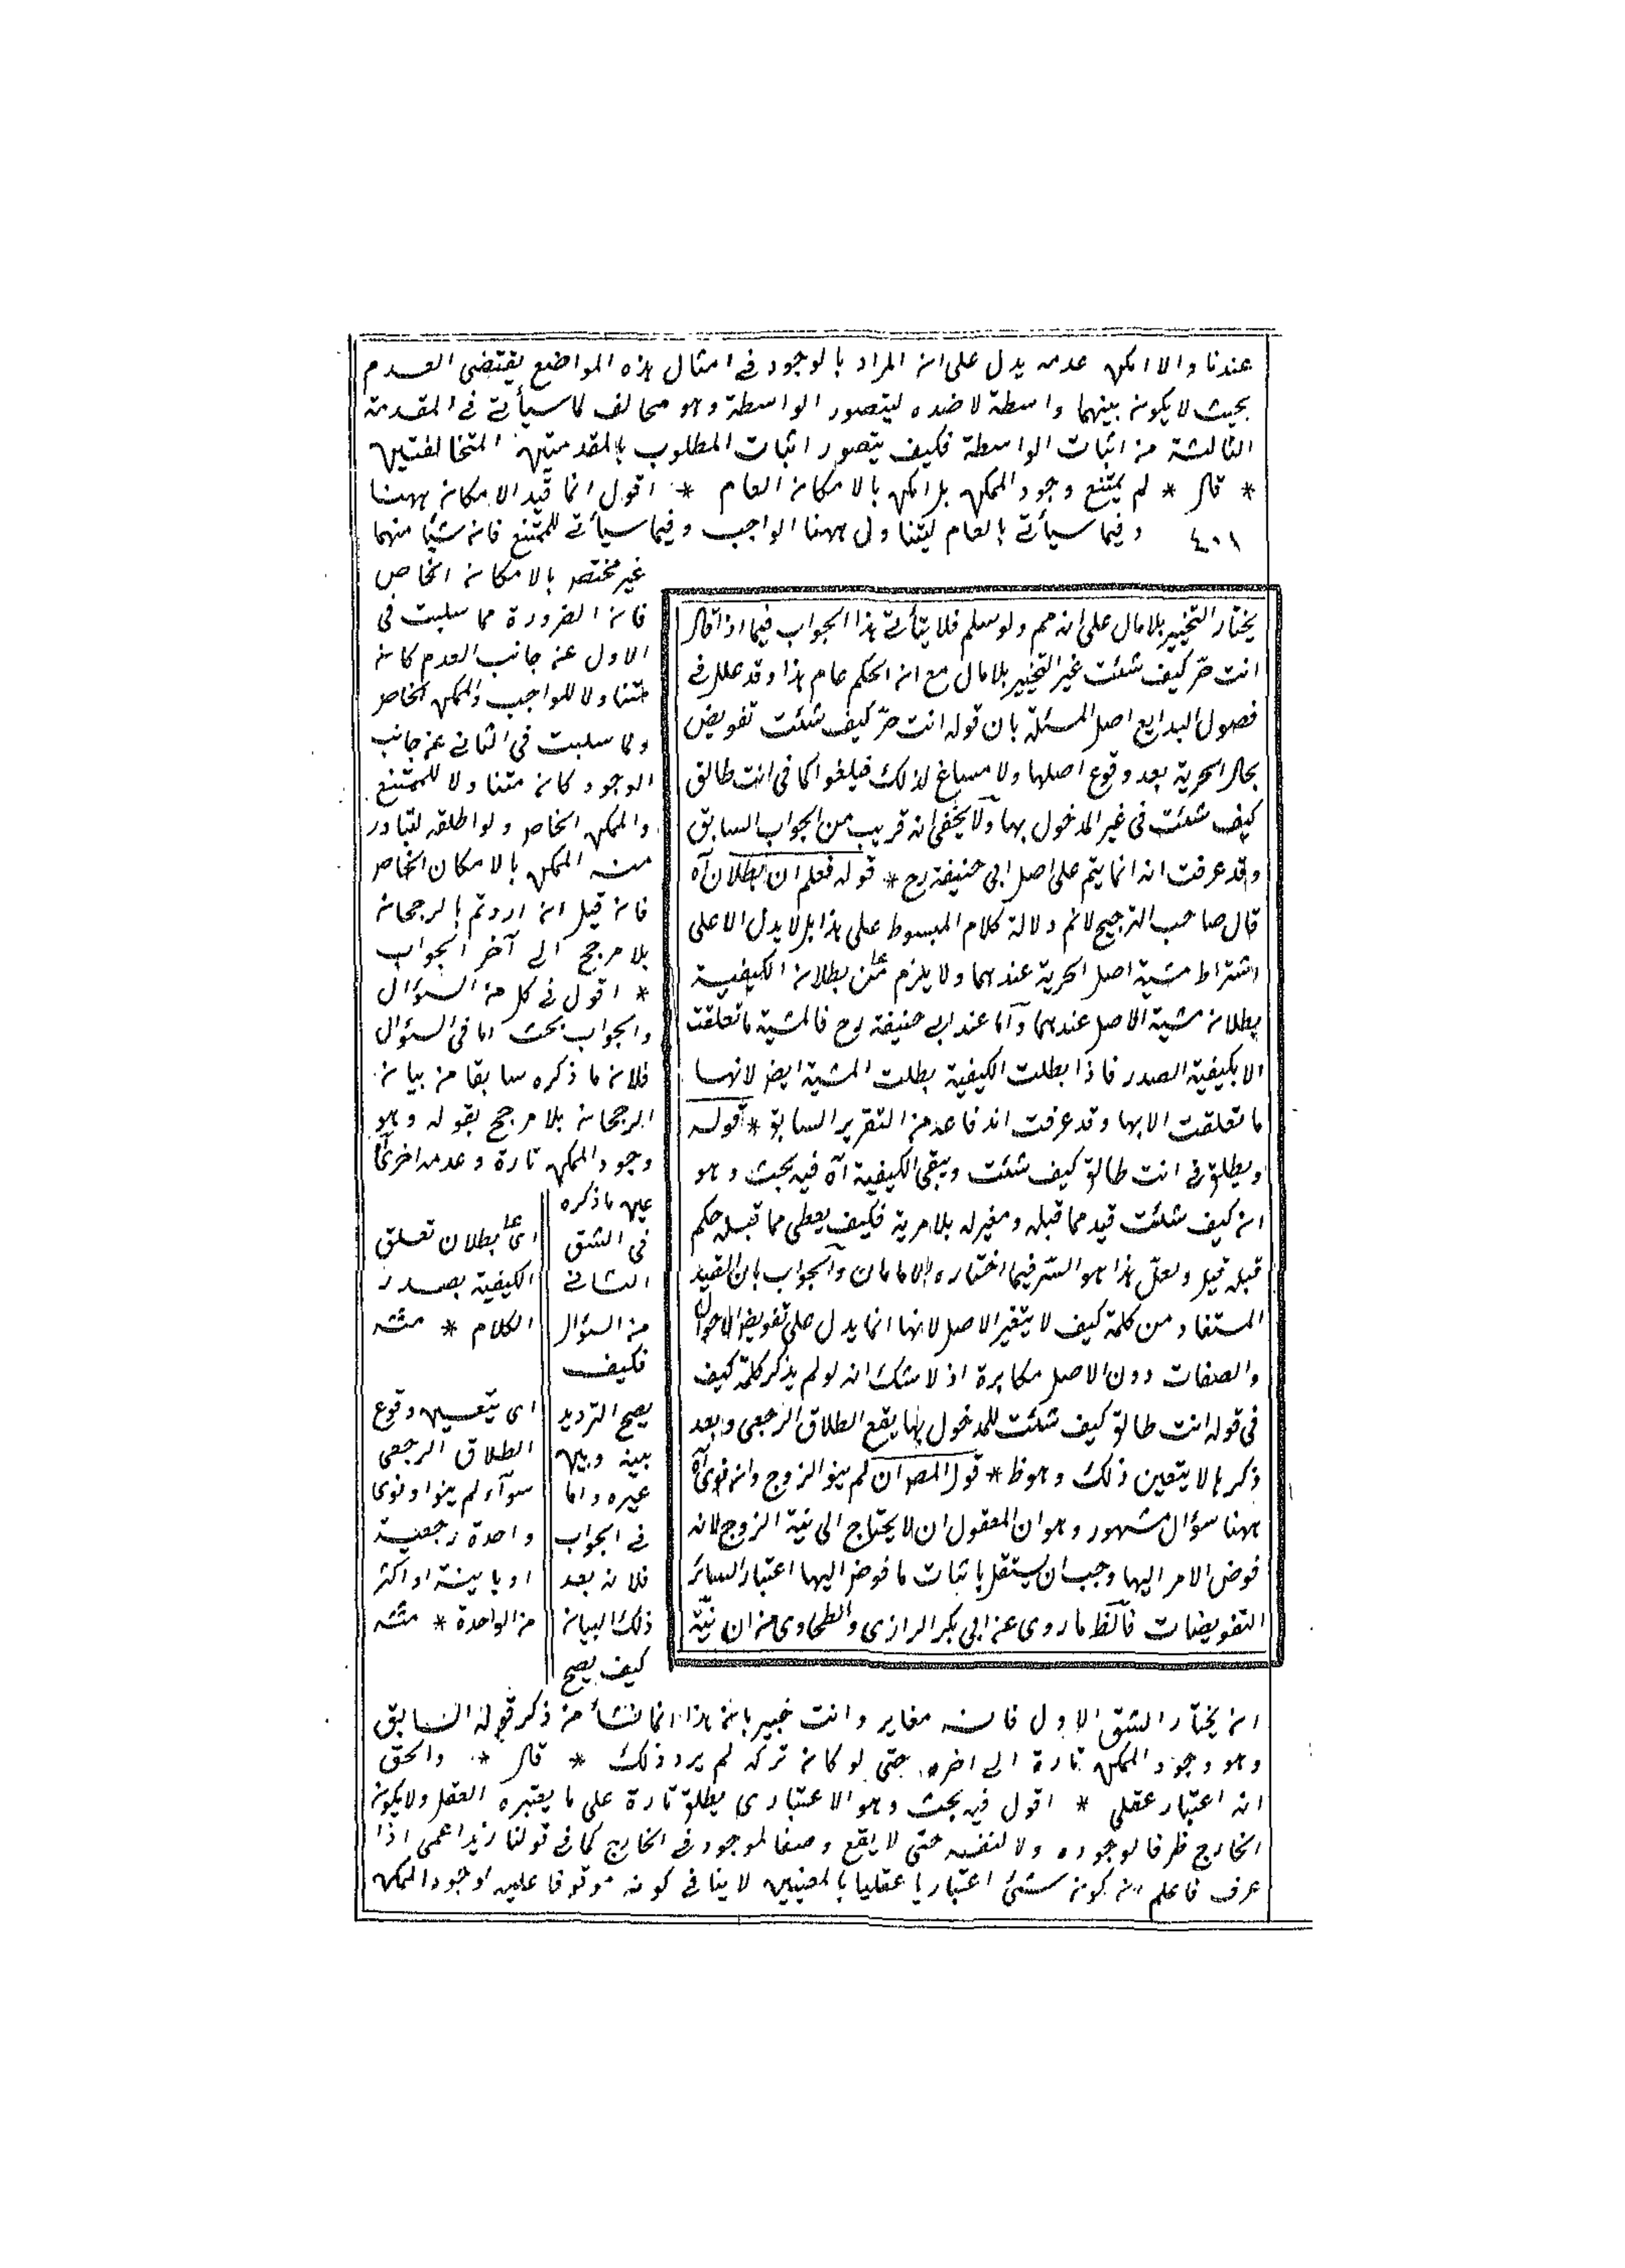 عندنا والا امكن عدمه يدل على ان المراد بالوجود فى امثال هذه المواضع يقتضى العدم
بحيث لا يكون بينهما واسطة لا ضده ليتصور الواسطة وهو مخالف لما سيأتى فى المقدمة
الثالثة من اثبات الواسطة فكيف يتصور اثبات المطلوب بالمقدمتين المتخالفتين
* قال * لم يمتنع وجود الممكن بل امكن بالامكان العام * اقول انما قيد الامكان ههنا
٤٠١ وفيما سيأتى بالعام ليتناول ههنا الواجب وفيما سيأتى للممتنع فان شيئا منهما
غير مختص بالامكان الخاص
فان الضرورة مما سلبت فى
الاول عن جانب العدم كان
متناولا للواجب والممكن الخاص
ولما سلبت فى الثانى عن جانب
الوجود كان متناولا للممتنع
والممكن الخاص ولو اطلقه لتبادر
منه الممكن بالامكان الخاص
فان قيل ان اردتم بالرجحان
بلا مرجح الى آخر الجواب
* اقول فى كل من السؤال
والجواب بحث اما فى السؤال
فلان ما ذكره سابقا من بيان
الرجحان بلا مرجح بقوله وهو
وجود الممكن تارة وعدمه اخرى
عين ما ذكره
فى الشق
الثانى
من السؤال
فكيف
يصح الترديد
بينه وبين
غيره واما
فى الجواب
فلان بعد
ذلك البيان
كيف يصح
ان يختار الشق الاول فانه مغاير وانت خبير بان هذا انما نشأ من ذكر قوله السابق
وهو وجود الممكن تارة الى اخره حتى لو كان تركه لم يرد ذلك * قال * والحق
انه اعتبار عقلى * اقول فيه بحث وهو الاعتبارى يطلق تارة على ما يعتبره العقل ولا يكون
الخارج ظرفا لوجوده ولا لنفسه حتى لا يقع وصفا لموجود فى الخارج كما فى قولنا زيد اعمى اذا
عرف فاعلم ان كون شئ اعتباريا عقليا بالمعنيين لا ينافى كونه موقوفا عليه لوجود الممكن
يختار التخيير بلا مال على انه مم ولو سلم فلا يتأتى هذا الجواب فيما اذا قال
انت حر كيف شئت غير التخيير بلا مال مع ان الحكم عام هذا وقد علل فى
فصول البدايع اصل المسئلة بان قوله انت حر كيف شئت تفويض
بحال الحرية بعد وقوع اصلها ولا مساغ لذلك فيلغوا كما فى انت طالق
كيف شئت فى غير المدخول بها ولا يخفى انه قريب من الجواب السابق
وقد عرفت انه انما يتم على اصل ابى حنيفة رح * قوله فعلم ان بطلان آه
قال صاحب الترجيح لانم دلالة كلام المبسوط على هذا بل لا يدل الا على
اشتراط مشية اصل الحرية عندهما ولا يلزم من بطلان الكيفية
بطلان مشية الاصل عندهما واما عند ابى حنيفة رح فالمشية ما تعلقت
الا بكيفية الصدر فاذا بطلت الكيفية بطلت المشية ايضا لانها
ما تعلقت الا بها وقد عرفت اندفاعه من التقرير السابق * قوله
ويطلق فى انت طالق كيف شئت ويبقى الكيفية آه فيه بحث وهو
ان كيف شئت قيد مما قبله ومغير له بلا مرية فكيف يعطى مما قبله حكم
قبله قيل ولعل هذا هو السر فيما اختاره الامامان والجواب بان القيد
المستفاد من كلمة كيف لا يتغير الاصل لانها انما يدل على تفويض الاحوال
والصفات دون الاصل مكابرة اذ لا شك انه لو لم يذكر كلمة كيف
فى قوله انت طالق كيف شئت للمدخول بها يقع الطلاق الرجعى وبعد
ذكرها لا يتعين ذلك وهو ظ * قول المص ان لم ينو الزوج وان نوى آه
ههنا سؤال مشهور وهو ان المعقول ان لا يحتاج الى نية الزوج لانه
فوض الامر اليها وجب ان يستقل باثبات ما فوض اليها اعتبارا لسائر
التفويضات فالظ ما روى عن ابى بكر الرازى والطحاوى من ان نية
اى بطلان تعلق
الكيفية بصدر
الكلام * منه
اى يتعين وقوع
الطلاق الرجعى
سوآء لم ينوا ونوى
واحدة رجعية
او باينة او اكثر
من الواحدة * منه